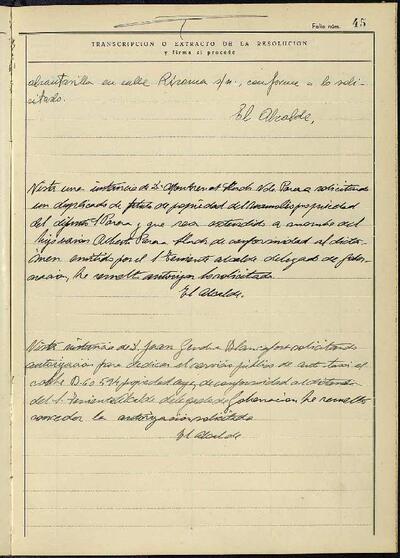 Folio núm. 45
TRANSCRIPCION O EXTRACTO DE LA RESOLUCION
y firma si procede
alcantarilla en calle s/n., conforme a lo soli-
citado.
El Alcalde,
Vista una instancia de D. Vda. Parera solicitando
un duplicado de de propiedad del propiedad
del difunto Parera, y que sea extendido a nombre del
hijo Alberto Parera de conformidad al dicta-
men emitido por el Teniente alcalde delegado de Gober-
nación, he resuelto autorizar lo solicitado.
El Alcalde.
Vista instancia de D. Juan solicitando
autorización para dedicar el servicio público de auto-taxi el
coche B-60.594 propiedad de conformidad al dictamen
del T. Teniente Alcalde delegado de Gobernación he resuelto
conceder la autorización solicitada
El Alcalde